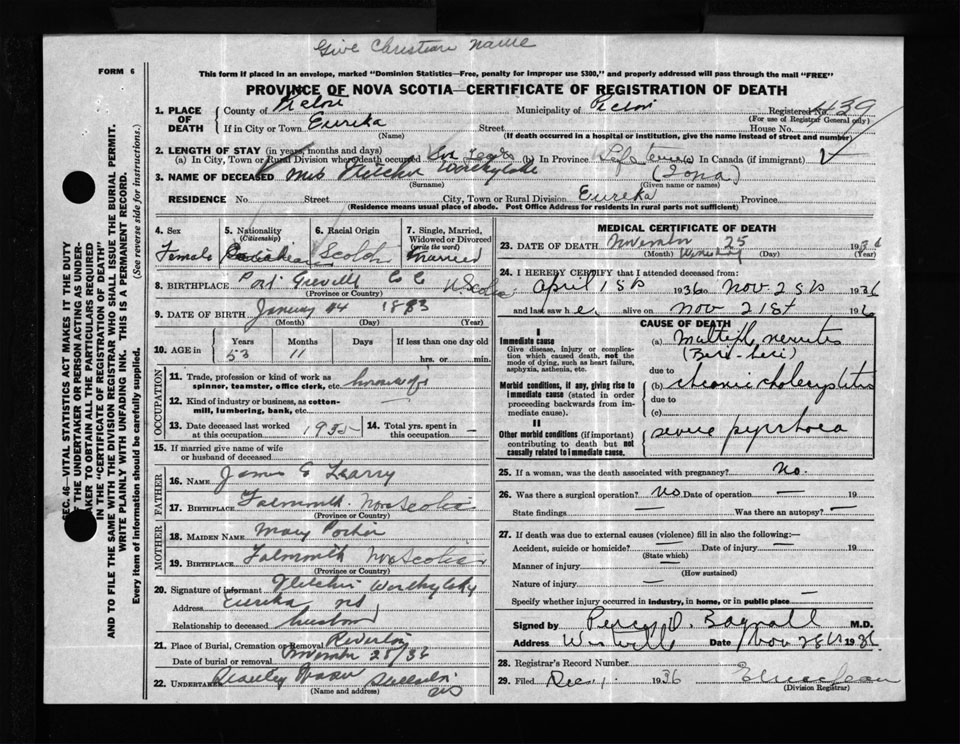 Give Christian Name
FORM 6
This form if placed in an envelope, marked "Dominion Statistics—Free, penalty for improper use $300," and properly addressed will pass through the mail "FREE"
PROVINCE OF NOVA SCOTIA—CERTIFICATE OF REGISTRATION OF DEATH
1. PLACE OF DEATH County of Pictou Municipality of Pictou Registered No. 439
(For use of Registrar General only)
If in City or Town Eureka Street House No.
(Name) (If death occurred in a hospital or institution, give the name instead of street and number)
2. LENGTH OF STAY (in years, months and days)
(a) In City, Town or Rural Division where death occurred (b) In Province Life time (c) In Canada (if immigrant)
3. NAME OF DECEASED Mrs Fletcher Worthylake (Iona)
(Surname) (Given name or names)
RESIDENCE No. Street City, Town or Rural Division Eureka Province
(Residence means usual place of abode. Post Office Address for residents in rural parts not sufficient)
4. Sex 5. Nationality (Citizenship) 6. Racial Origin 7. Single, Married, Widowed or Divorced (write the word)
Female Canadian Scotch Married
8. BIRTHPLACE Port Greville C C N. Scotia
(Province or Country)
9. DATE OF BIRTH January 14 1883
(Month) (Day) (Year)
10. AGE in Years Months Days If less than one day old
53 11 hrs. or min.
OCCUPATION
11. Trade, profession or kind of work as spinner, teamster, office clerk, etc. housewife
12. Kind of industry or business, as cotton-mill, lumbering, bank, etc. —
13. Date deceased last worked at this occupation 1935 14. Total yrs. spent in this occupation —
15. If married give name of wife or husband of deceased
FATHER
16. NAME James E
17. BIRTHPLACE Falmouth Nova Scotia
(Province or Country)
MOTHER
18. MAIDEN NAME Mary Porter
19. BIRTHPLACE Falmouth Nova Scotia
(Province or Country)
20. Signature of informant Fletcher Worthylake
Address Eureka NS
Relationship to deceased husband
21. Place of Burial, Cremation or Removal Riverton
Date of burial or removal November 28/36
22. UNDERTAKER NS
(Name and address)
MEDICAL CERTIFICATE OF DEATH
23. DATE OF DEATH November 25 1936
(Month) (Day) (Year)
24. I HEREBY CERTIFY that I attended deceased from:
April 1st 1936 to Nov. 25th 1936
and last saw her alive on Nov 21st 1936
CAUSE OF DEATH
I
Immediate cause
Give disease, injury or complication which caused death, not the mode of dying, such as heart failure, asphyxia, asthenia, etc.
(a) Multiple neuritis
(Beri-beri)
due to
Morbid conditions, if any, giving rise to immediate cause (stated in order proceeding backwards from immediate cause).
(b) chronic cholecystitis
due to
(c)
II
Other morbid conditions (if important) contributing to death but not causally related to immediate cause.
severe pyrrhoea
25. If a woman, was the death associated with pregnancy? no.
26. Was there a surgical operation? no Date of operation — 19
State findings — Was there an autopsy? —
27. If death was due to external causes (violence) fill in also the following:—
Accident, suicide or homicide? — Date of injury — 19
(State which)
Manner of injury —
(How sustained)
Nature of injury —
Specify whether injury occurred in industry, in home, or in public place —
Signed by Percy O. Bagnall M.D.
Address Date Nov 28th 1936
28. Registrar's Record Number
29. Filed Dec 1 1936
(Division Registrar)
SEC. 46—VITAL STATISTICS ACT MAKES IT THE DUTY
OF THE UNDERTAKER OR PERSON ACTING AS UNDERTAKER TO OBTAIN ALL THE PARTICULARS REQUIRED
IN THE "CERTIFICATE OF REGISTRATION OF DEATH"
AND TO FILE THE SAME WITH THE DIVISION REGISTRAR WHO SHALL ISSUE THE BURIAL PERMIT.
WRITE PLAINLY WITH UNFADING INK. THIS IS A PERMANENT RECORD.
Every item of information should be carefully supplied. (See reverse side for instructions.)